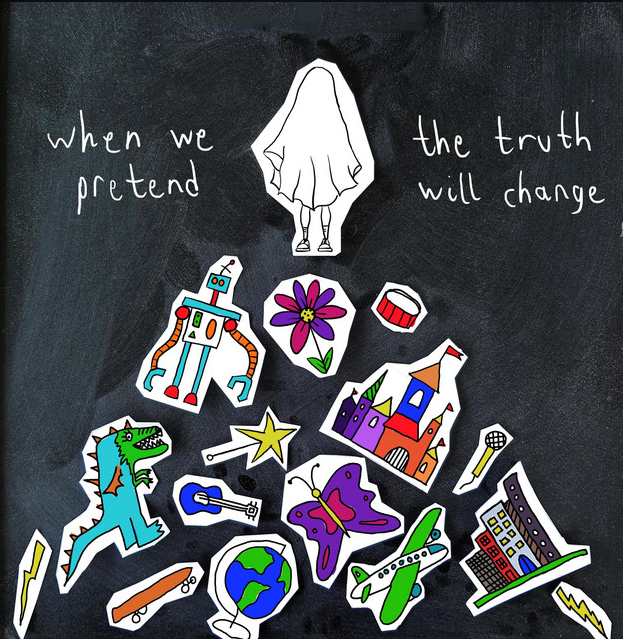 when we
pretend
the truth
will change